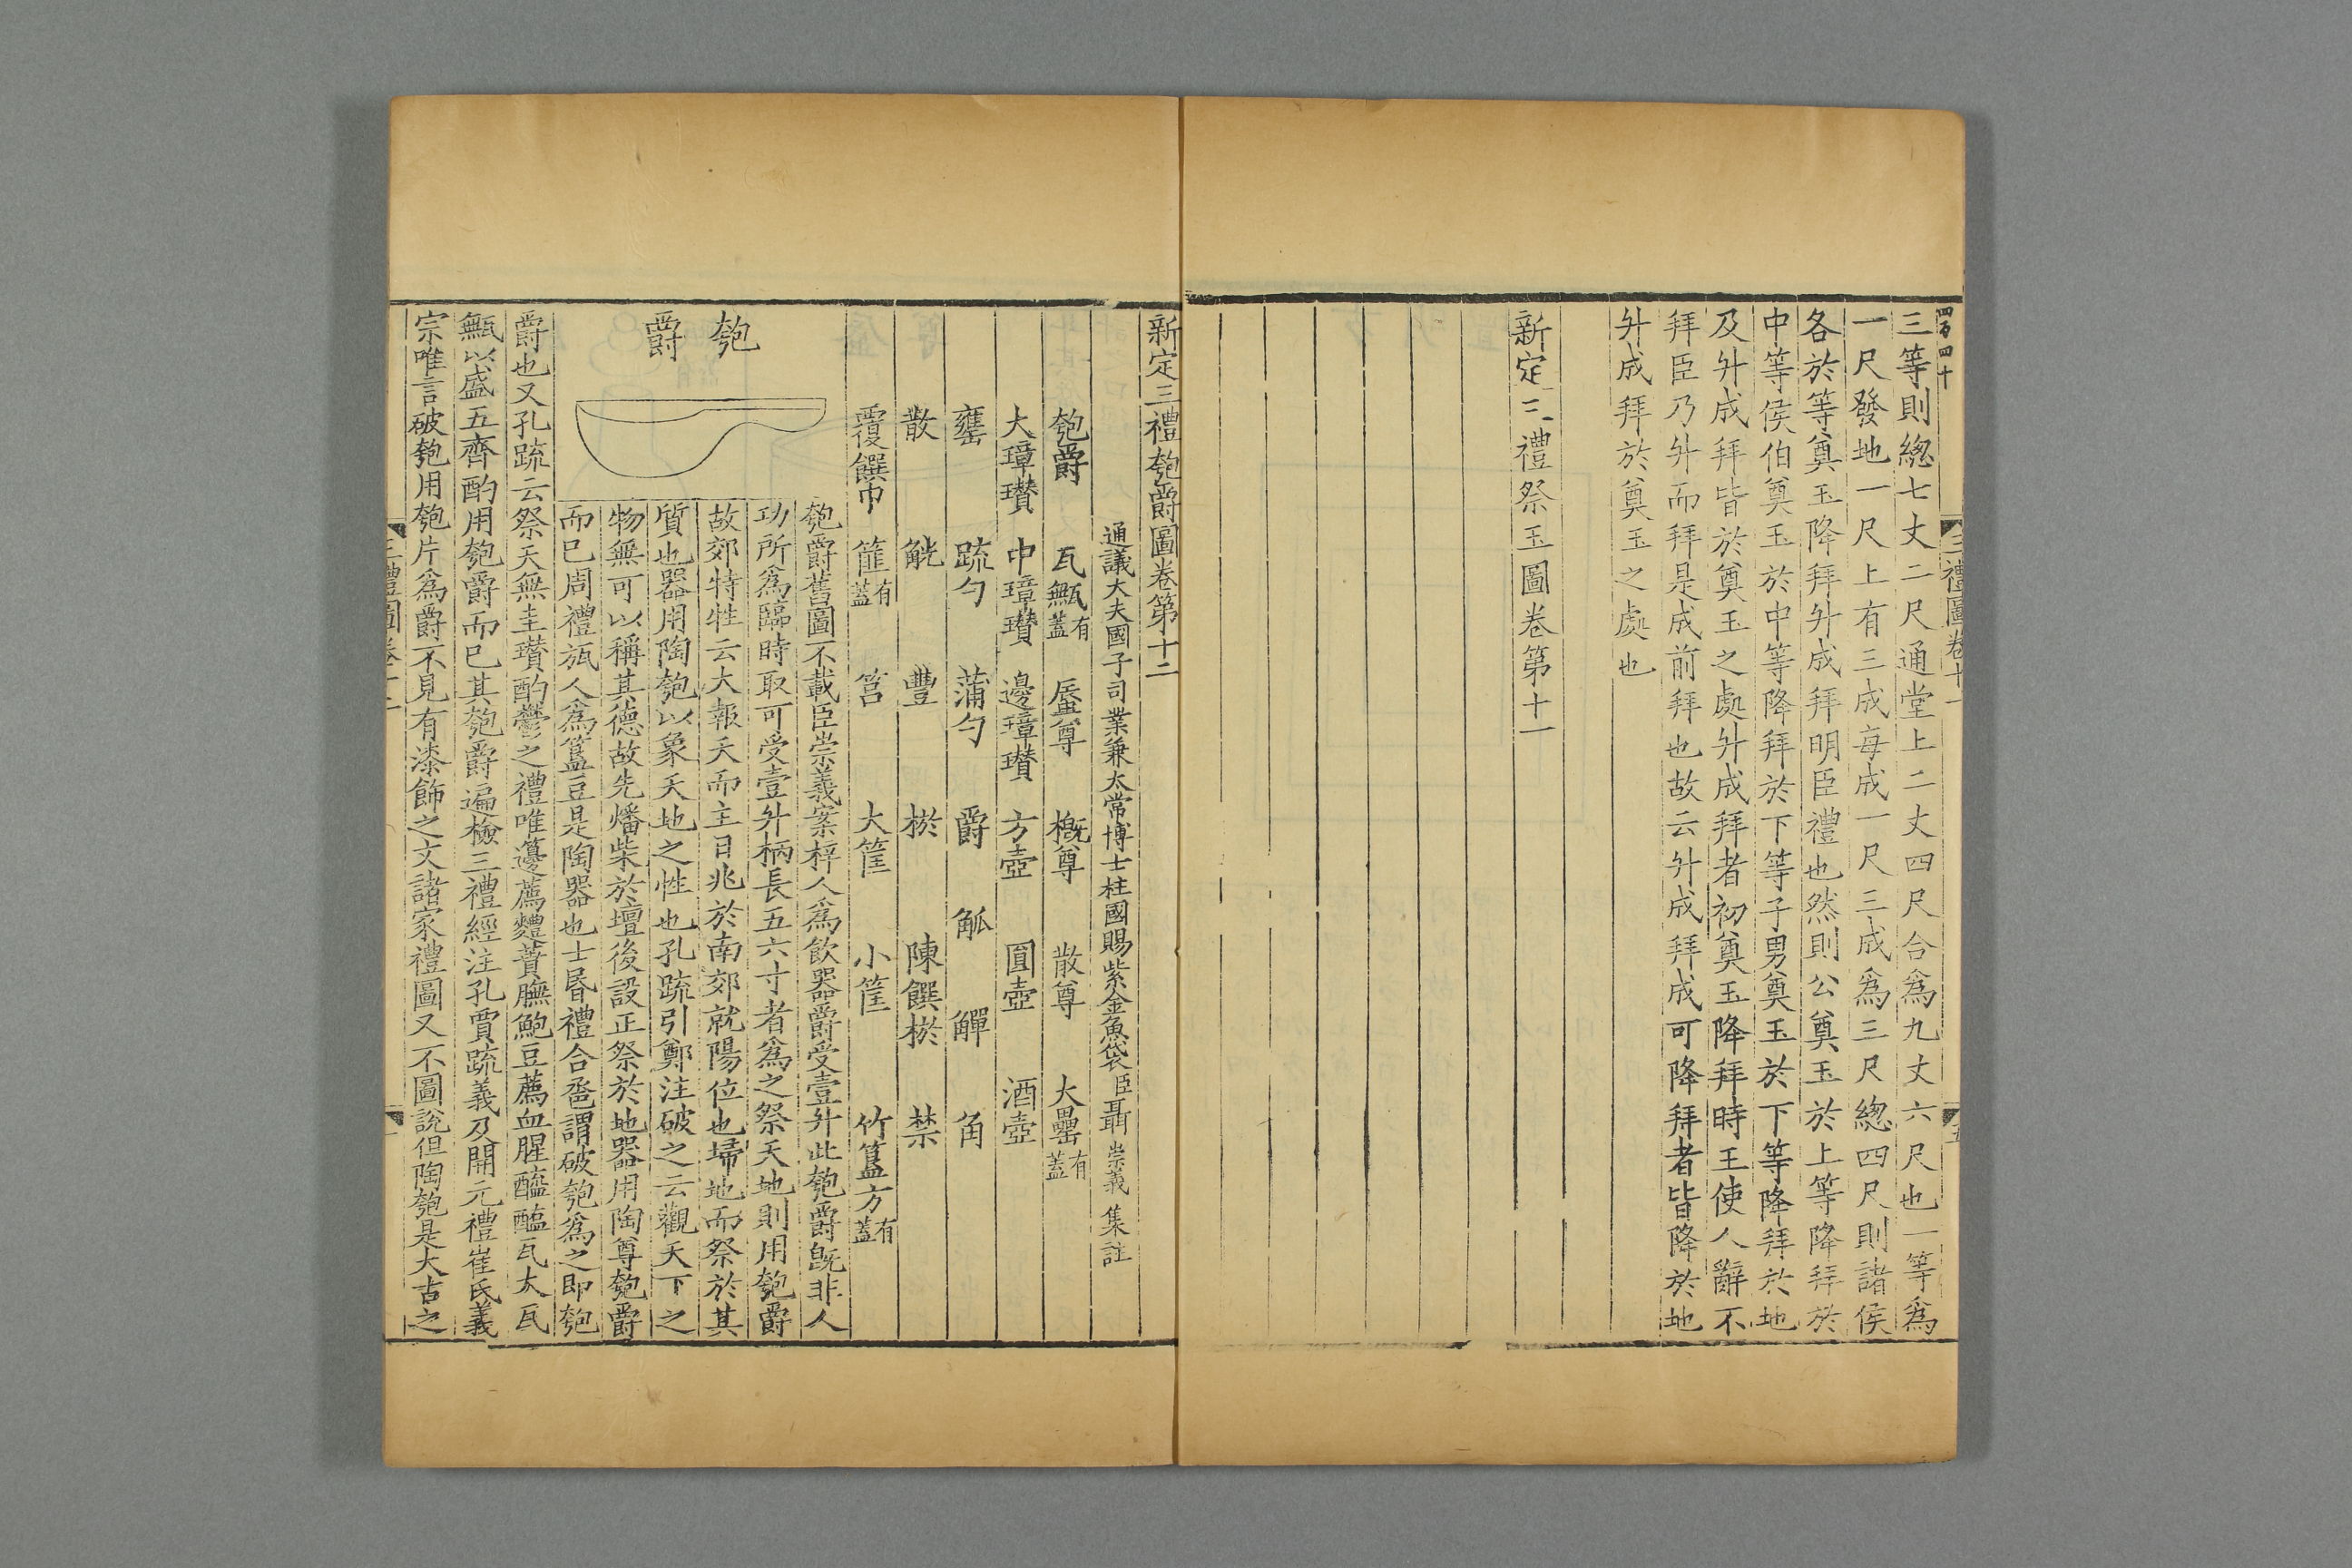 四百四十
三禮圖卷十一
五
三等則緫七丈二尺通堂上二丈四尺合爲九丈六尺也一等爲
一尺發地一尺上有三成每成一尺三成爲三尺緫四尺則諸侯
各於等奠玉降拜升成拜明臣禮也然則公奠玉於上等降拜於
中等侯伯奠玉於中等降拜於下等子男奠玉於下等降拜於地
及升成拜皆於奠玉之處升成拜者初奠玉降拜時王使人辭不
拜臣乃升而拜是成前拜也故云升成拜成可降拜者皆降於地
升成拜於奠玉之處也
新定三禮祭玉圖卷第十一
新定三禮匏爵圖卷第十二
通議大夫國子司業兼太常博士柱國賜紫金魚袋臣聶崇義集註
匏爵 瓦甒有蓋 蜃尊 概尊 散尊 大罍有蓋
大璋瓚 中璋瓚 邊璋瓚 方壺 圓壺 酒壺
罋 疏勺 蒲勺 爵 觚 觶 角
散 觥 豐 棜 陳饌棜 禁
覆饌巾 篚有蓋 筥 大筐 小筐 竹簋方有蓋
匏爵
匏爵舊圖不載臣崇義案梓人爲飲器爵受壹升此匏爵旣非人
功所爲臨時取可受壹升柄長五六寸者爲之祭天地則用匏爵
故郊特牲云大報天而主日兆於南郊就陽位也埽地而祭於其
質也器用陶匏以象天地之性也孔疏引鄭注破之云觀天下之
物無可以稱其德故先燔柴於壇後設正祭於地器用陶尊匏爵
而已周禮瓬人爲簋豆是陶器也士昬禮合卺謂破匏爲之即匏
爵也又孔疏云祭天無圭瓚酌鬱之禮唯籩薦麷蕡膴鮑豆薦血腥醯醢瓦大瓦
甒以盛五齊酌用匏爵而已其匏爵遍檢三禮經注孔賈疏義及開元禮崔氏義
宗唯言破匏用匏片爲爵不見有漆飾之文諸家禮圖又不圖說但陶匏是大古之
三禮圖卷十二
一